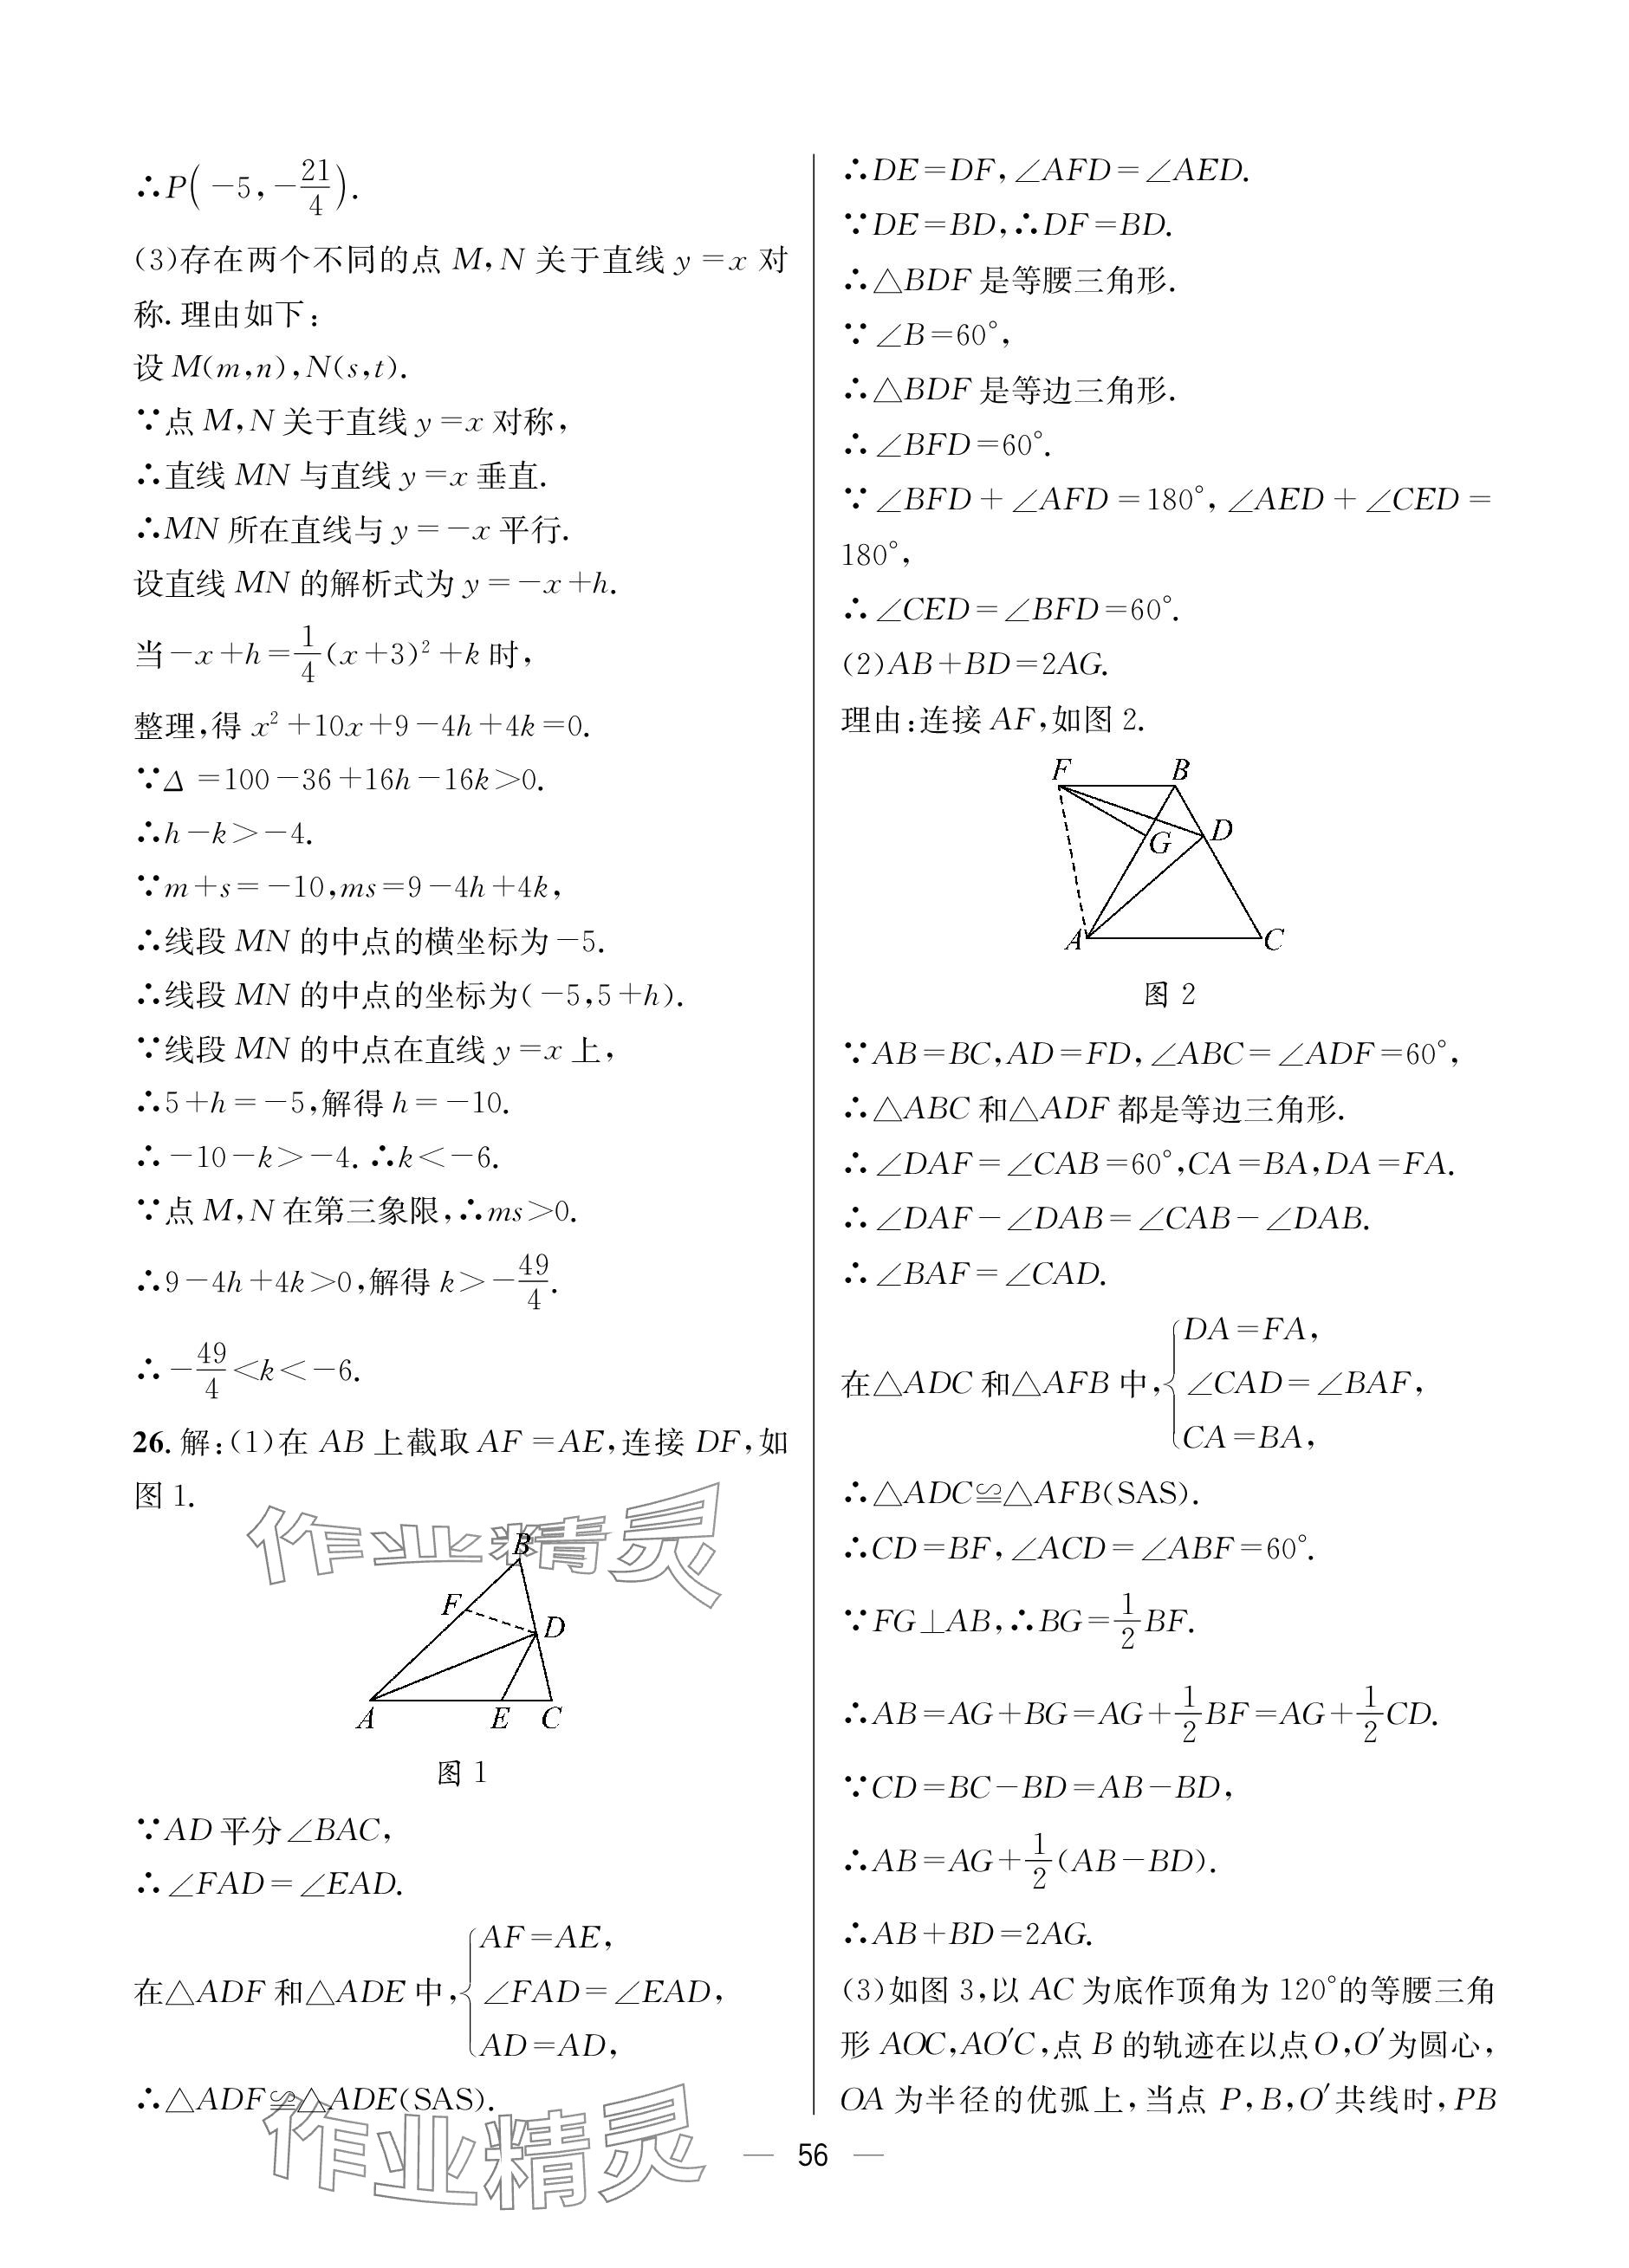 ∴P(−5,−21/4).
(3)存在两个不同的点 M,N 关于直线 y=x 对
称.理由如下:
设 M(m,n),N(s,t).
∵点 M,N 关于直线 y=x 对称,
∴直线 MN 与直线 y=x 垂直.
∴MN 所在直线与 y=−x 平行.
设直线 MN 的解析式为 y=−x+h.
当−x+h=1/4(x+3)²+k 时,
整理,得 x²+10x+9−4h+4k=0.
∵Δ=100−36+16h−16k>0.
∴h−k>−4.
∵m+s=−10,ms=9−4h+4k,
∴线段 MN 的中点的横坐标为−5.
∴线段 MN 的中点的坐标为(−5,5+h).
∵线段 MN 的中点在直线 y=x 上,
∴5+h=−5,解得 h=−10.
∴−10−k>−4.∴k<−6.
∵点 M,N 在第三象限,∴ms>0.
∴9−4h+4k>0,解得 k>−49/4.
∴−49/4<k<−6.
26.解:(1)在 AB 上截取 AF=AE,连接 DF,如
图 1.
B
F
D
A E C
图 1
∵AD 平分∠BAC,
∴∠FAD=∠EAD.
在△ADF 和△ADE 中,{AF=AE,
∠FAD=∠EAD,
AD=AD,
∴△ADF≌△ADE(SAS).
∴DE=DF,∠AFD=∠AED.
∵DE=BD,∴DF=BD.
∴△BDF 是等腰三角形.
∵∠B=60°,
∴△BDF 是等边三角形.
∴∠BFD=60°.
∵∠BFD+∠AFD=180°,∠AED+∠CED=
180°,
∴∠CED=∠BFD=60°.
(2)AB+BD=2AG.
理由:连接 AF,如图 2.
F B
G D
A C
图 2
∵AB=BC,AD=FD,∠ABC=∠ADF=60°,
∴△ABC 和△ADF 都是等边三角形.
∴∠DAF=∠CAB=60°,CA=BA,DA=FA.
∴∠DAF−∠DAB=∠CAB−∠DAB.
∴∠BAF=∠CAD.
在△ADC 和△AFB 中,{DA=FA,
∠CAD=∠BAF,
CA=BA,
∴△ADC≌△AFB(SAS).
∴CD=BF,∠ACD=∠ABF=60°.
∵FG⊥AB,∴BG=1/2BF.
∴AB=AG+BG=AG+1/2BF=AG+1/2CD.
∵CD=BC−BD=AB−BD,
∴AB=AG+1/2(AB−BD).
∴AB+BD=2AG.
(3)如图 3,以 AC 为底作顶角为 120°的等腰三角
形 AOC,AO′C,点 B 的轨迹在以点O,O′为圆心,
OA 为半径的优弧上,当点 P,B,O′共线时,PB
作业精灵
作业精灵
— 56 —